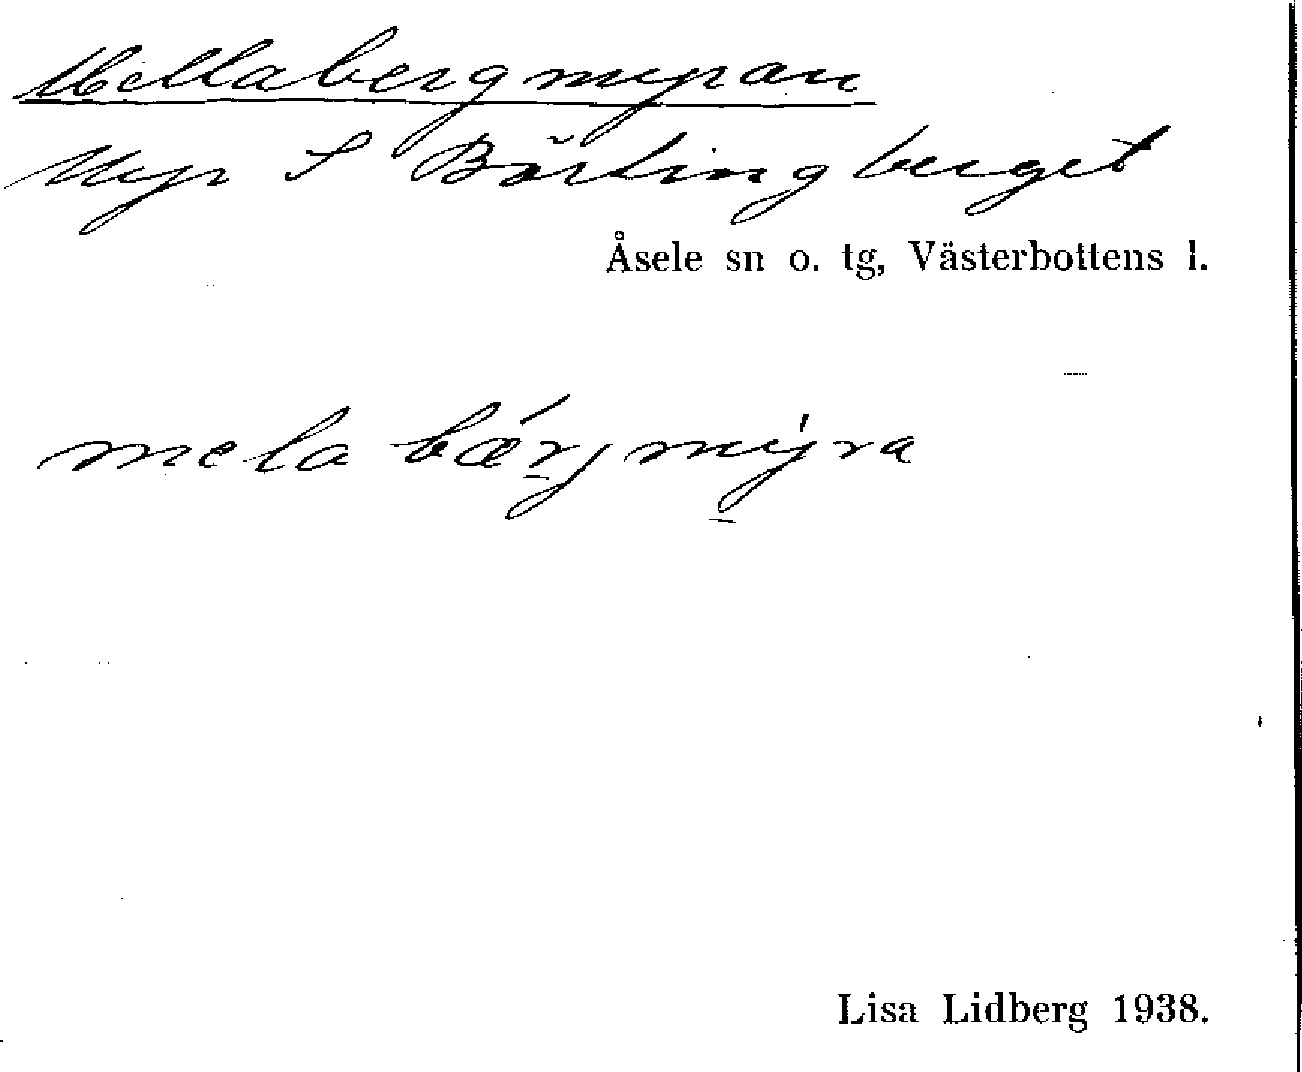 Mellabergmyran
Myr S Börtingberget
Åsele sn o. tg, Västerbottens l.
mela bærjmýra
Lisa Lidberg 1938.